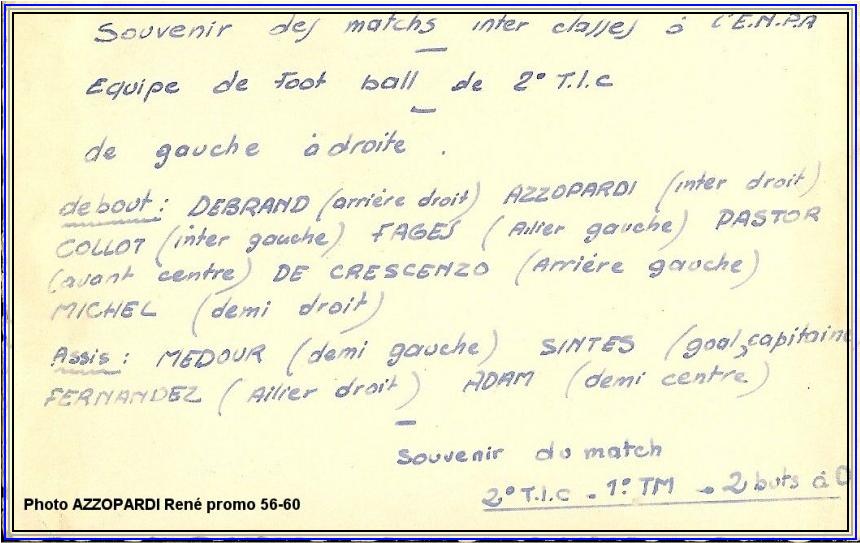 Souvenir des matchs inter classes à l'E.N.P.A
Equipe de foot ball de 2° T.I.C
de gauche à droite .
debout : DEBRAND (arrière droit) AZZOPARDI (inter droit)
COLLOT (inter gauche) FAGES (Ailier gauche) PASTOR
(avant centre) DE CRESCENZO (Arrière gauche)
MICHEL (demi droit)
Assis : MEDOUR (demi gauche) SINTES (goal, capitaine
FERNANDEZ (Ailier droit) ADAM (demi centre)
Souvenir du match
2° T.I.C - 1° TM - 2 buts à 0
Photo AZZOPARDI René promo 56-60